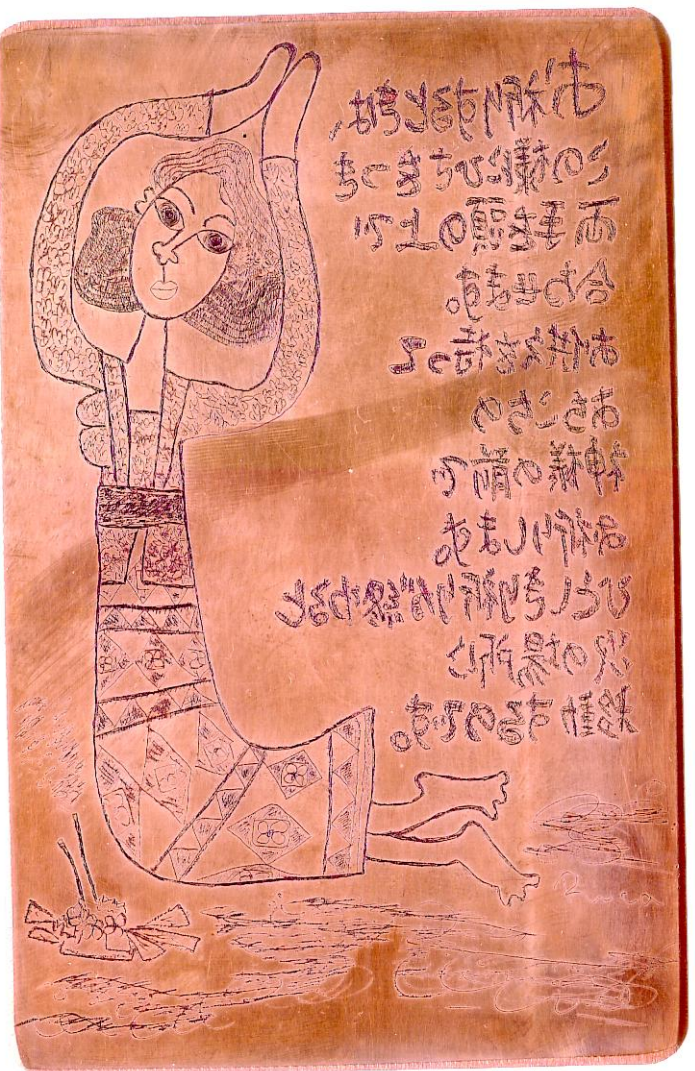 お祈りするときは、
この様にひざまづき
両手を頭の上で
合わせます。
お供えを持って
あちこちの
神様の前で
お祈りします。
ひとしきり祈りが終わると
次の場所に
移動するのです。